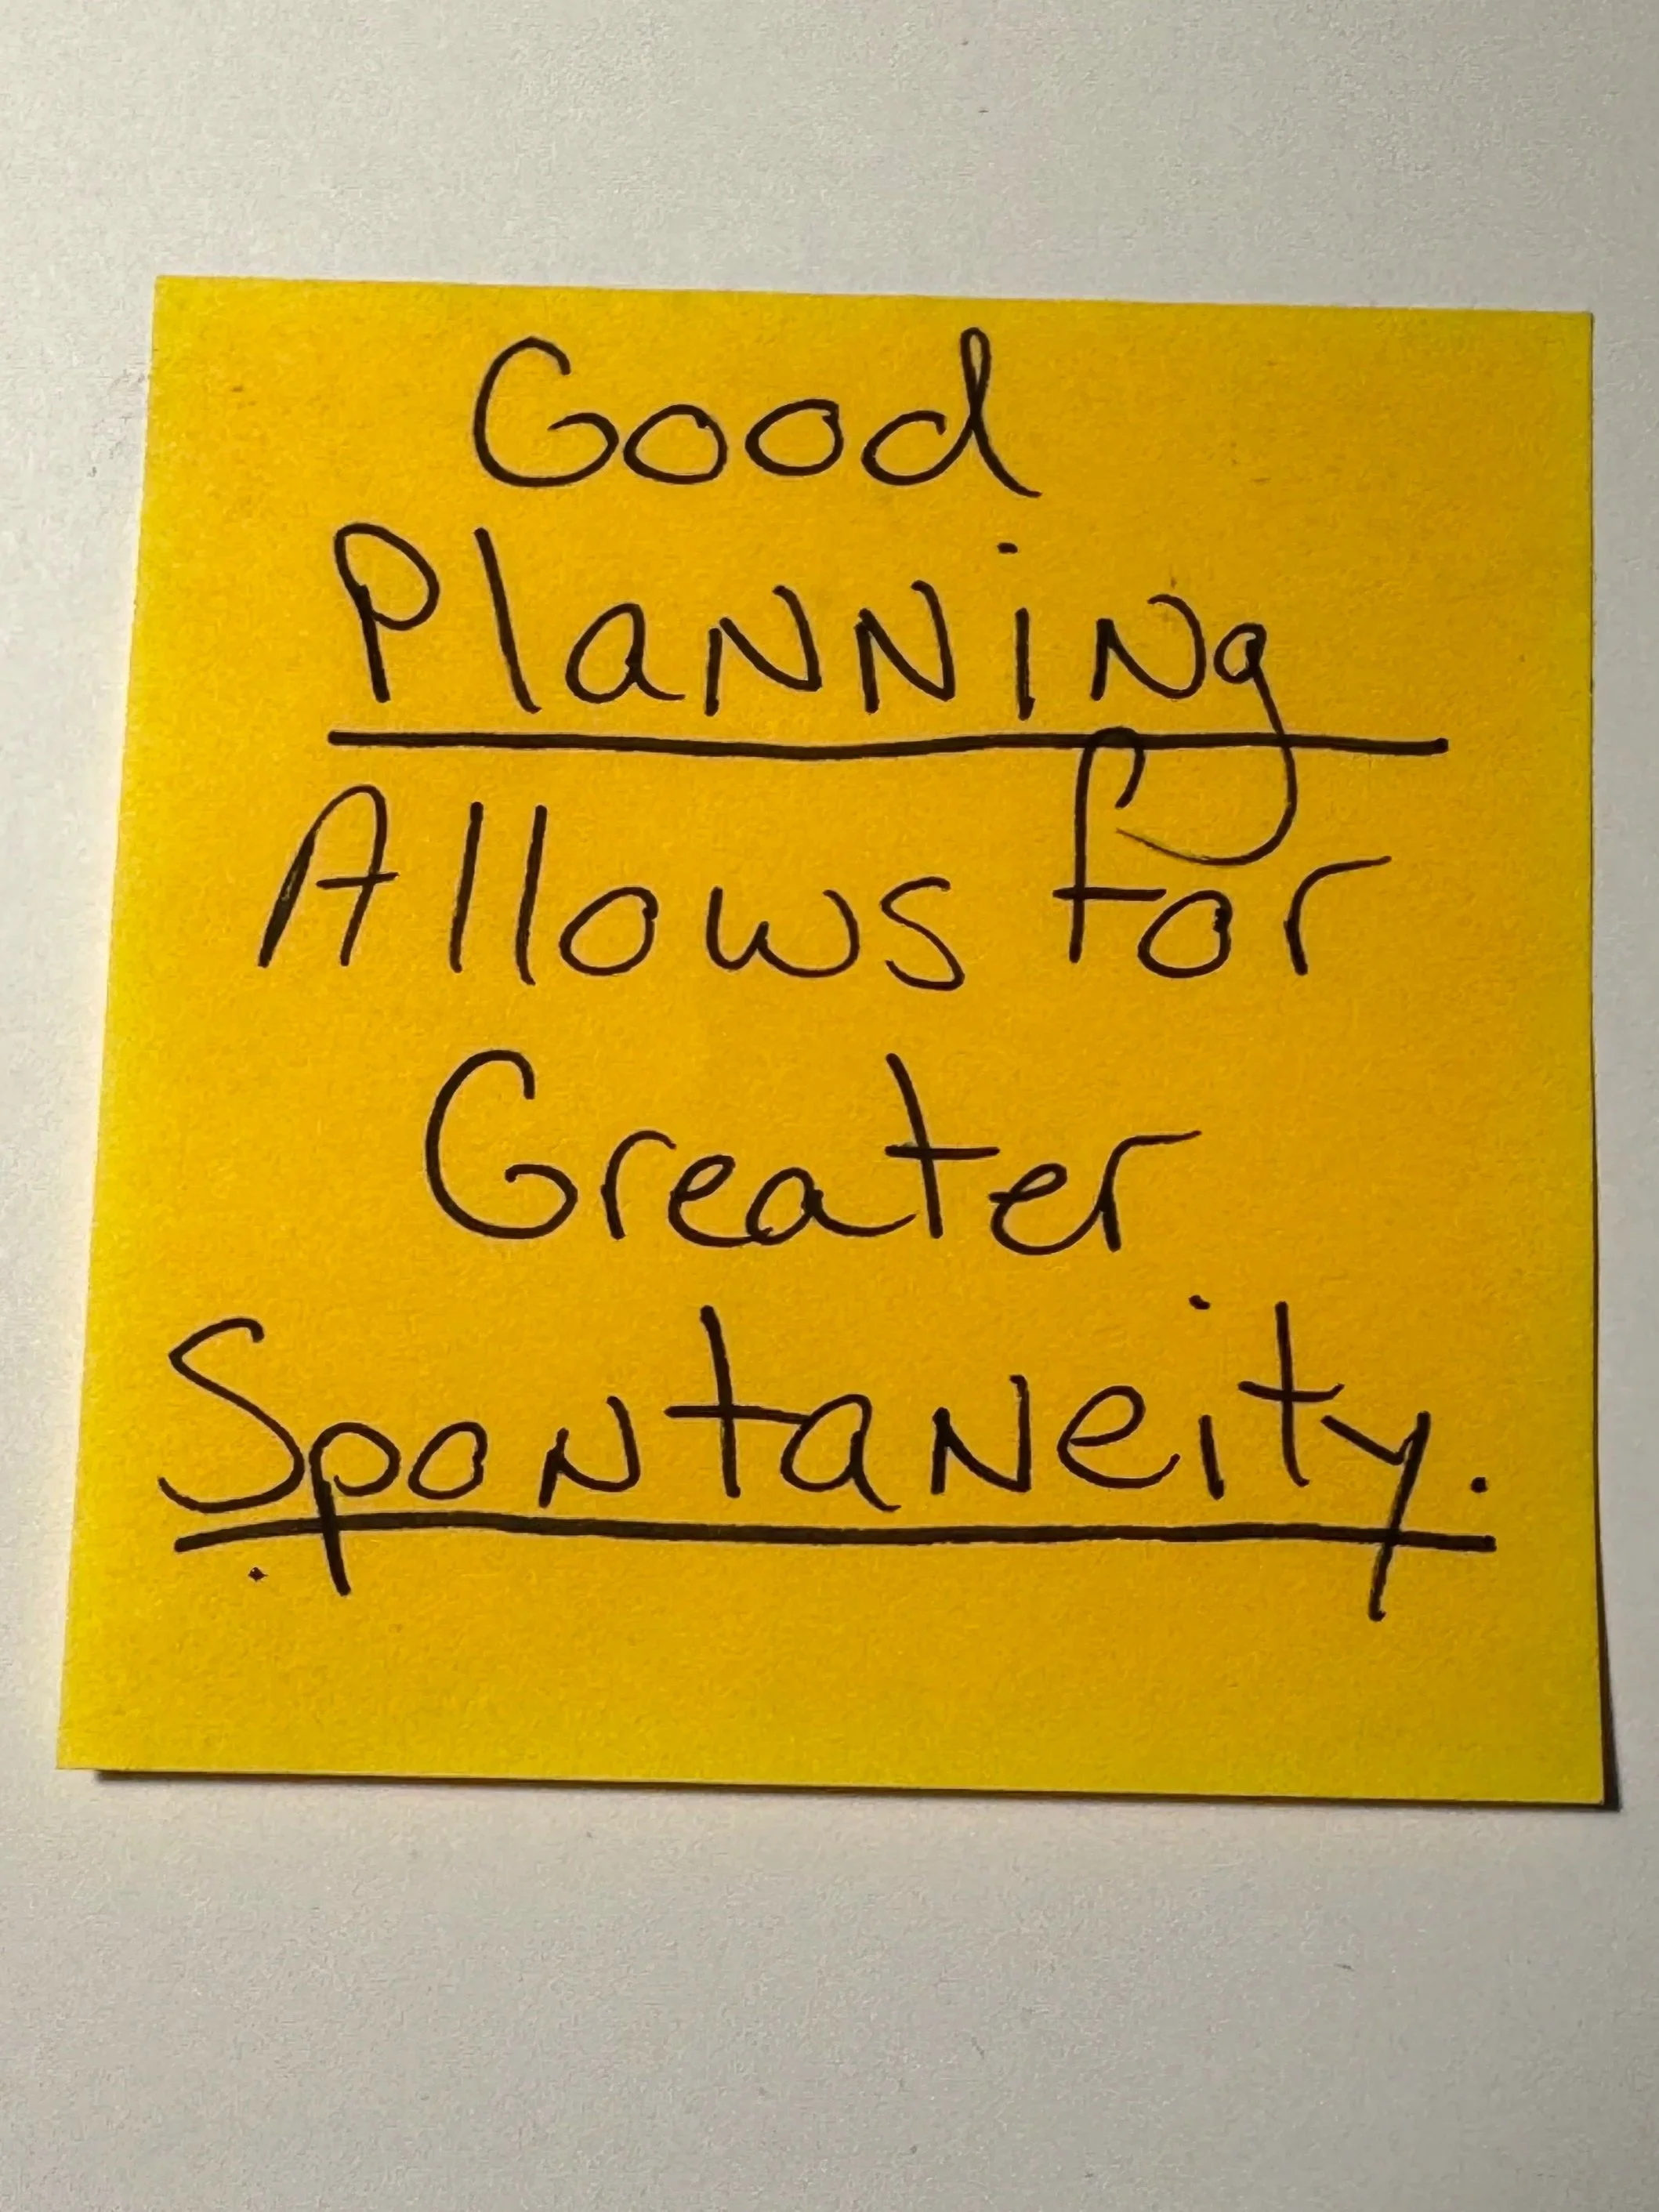 Good
Planning
Allows for
Greater
Spontaneity.